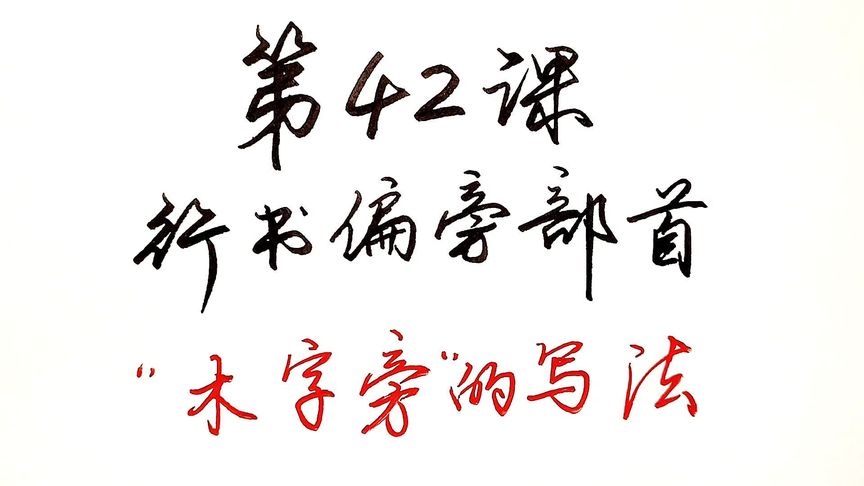 第42课
行书偏旁部首
“木字旁”的写法